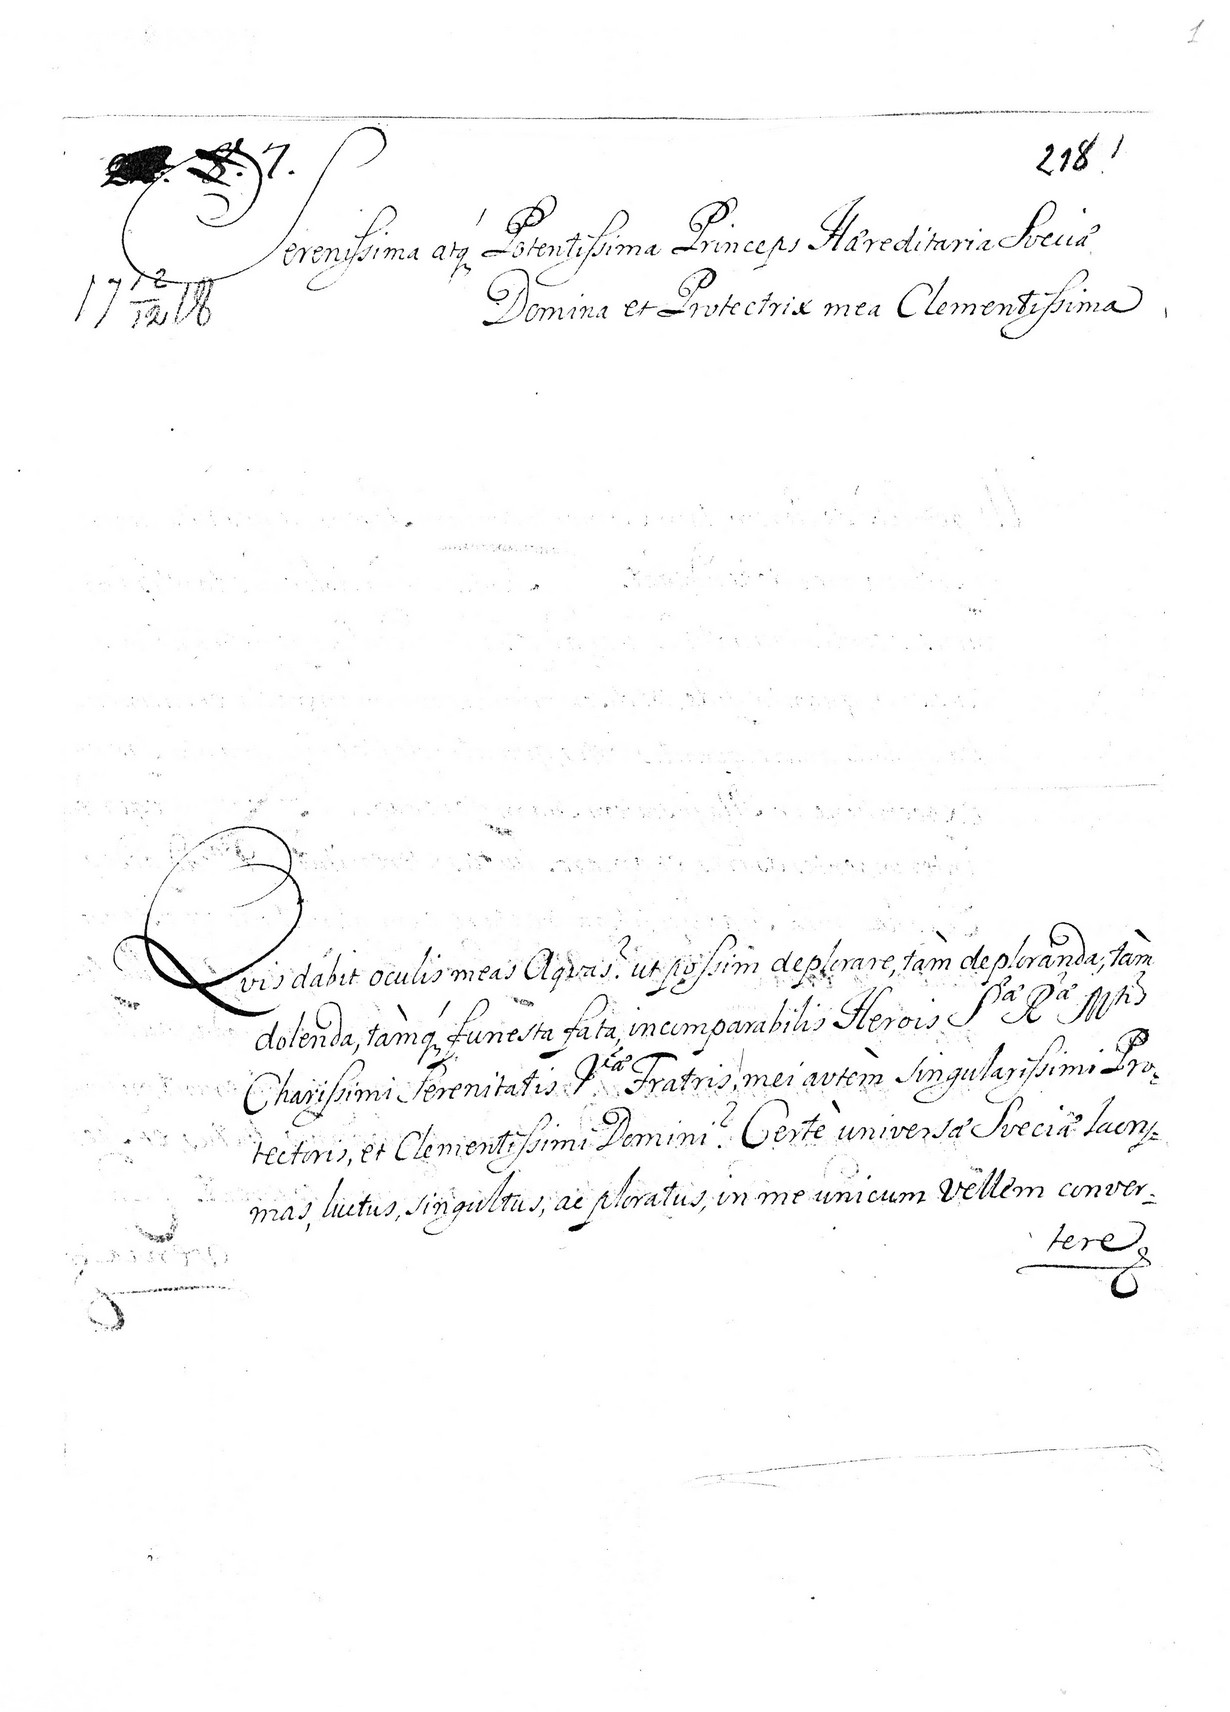 1
8. 7.
218!
Serenissima atq́ Potentissima Princeps Hæreditaria Sveciæ
17 12/12 18
Domina et Protectrix mea Clementissima
Qvis dabit oculis meas Aqvas? ut possim deplorare, tàm deploranda, tàm
dolenda, tàmq́ funesta fata, incomparabilis Herois Sæ Ræ Mtis
Charissimi Serenitatis Vræ Fratris, mei avtèm singularissimi Pro-
tectoris, et Clementissimi Domini? Certè universæ Sveciæ lacry-
mas, luctus, singultus, ac ploratus, in me unicum vellem conver-
tere